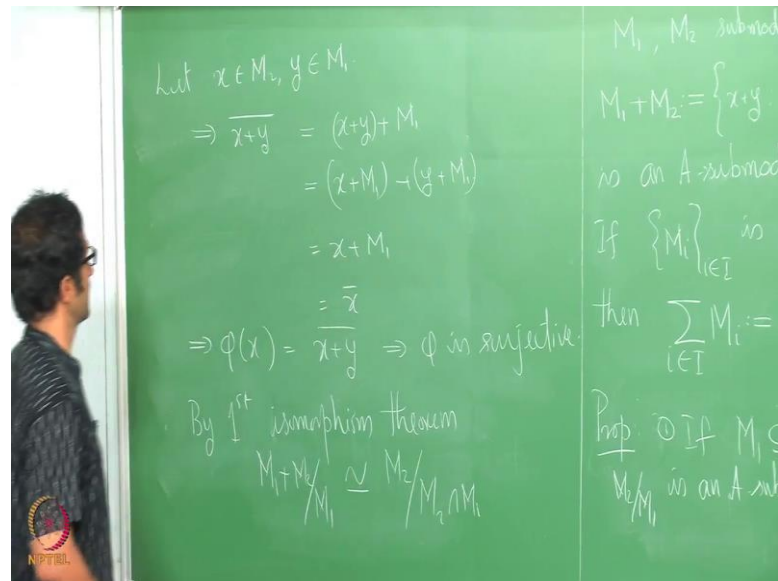 Let x ∈ M₂, y ∈ M₁.
⇒ \overline{x+y} = (x+y) + M₁
= (x+M₁) + (y+M₁)
= x + M₁
= \overline{x}
⇒ φ(x) = \overline{x+y} ⇒ φ is surjective.
By 1st isomorphism theorem
M₁+M₂/M₁ ≃ M₂/M₂∩M₁
M₁, M₂ submod
M₁+M₂ := {x+y
is an A-submod
If {Mᵢ}_{i∈I} is
then ∑_{i∈I} Mᵢ :=
Prop ① If M₁ ⊆
M₂/M₁ is an A-sub
NPTEL